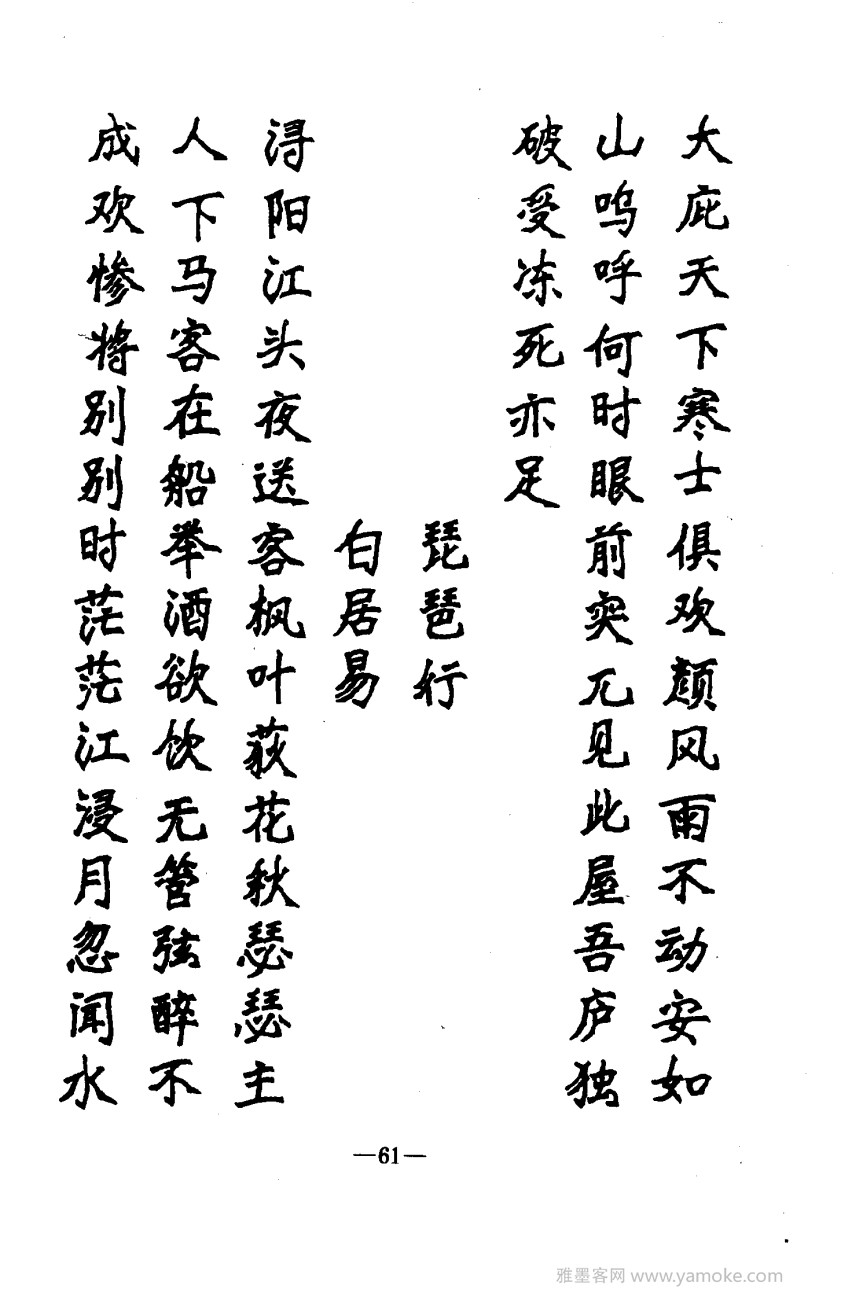 大庇天下寒士俱欢颜风雨不动安如
山呜呼何时眼前突兀见此屋吾庐独
破受冻死亦足
琵琶行
白居易
浔阳江头夜送客枫叶荻花秋瑟瑟主
人下马客在船举酒欲饮无管弦醉不
成欢惨将别别时茫茫江浸月忽闻水
—61—
雅墨客网 www.yamoke.com